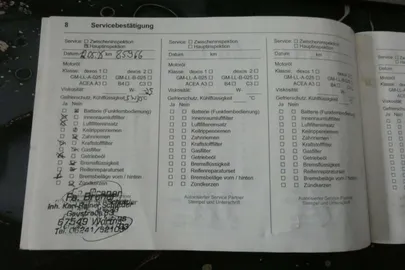 8 Servicebestätigung
Service: Zwischeninspektion
Hauptinspektion
Datum: km 65966
Motoröl
Klasse: dexos 1 dexos 2
GM-LL-A-025 GM-LL-B-025
ACEA A3 B4 C3
Viskosität: W-
Gefrierschutz, Kühlflüssigkeit
Ja Nein
Batterie (Funktionsbestimmung)
Innenraumluftfilter
Luftfiltereinsatz
Keilrippenriemen
Zahnriemen
Kraftstofffilter
Gasfilter
Getriebeöl
Bremsflüssigkeit
Reifenreparaturset
Bremsbeläge vorn / hinten
Zündkerzen
Fa. Bruner
Inh. Karl-Reiner
67549 Worms
Tel. 06241/
Service: Zwischeninspektion
Hauptinspektion
Datum: km
Motoröl
Klasse: dexos 1 dexos 2
GM-LL-A-025 GM-LL-B-025
ACEA A3 B4 C3
Viskosität: W-
Gefrierschutz, Kühlflüssigkeit °C
Ja Nein
Batterie (Funktionsbestimmung)
Innenraumluftfilter
Luftfiltereinsatz
Keilrippenriemen
Zahnriemen
Kraftstofffilter
Gasfilter
Getriebeöl
Bremsflüssigkeit
Reifenreparaturset
Bremsbeläge vorn / hinten
Zündkerzen
Autorisierter Service Partner
Stempel und Unterschrift
Service: Zwischeninspektion
Hauptinspektion
Datum: km
Motoröl
Klasse: dexos 1 dexos 2
GM-LL-A-025 GM-LL-B-025
ACEA A3 B4 C3
Viskosität: W-
Gefrierschutz, Kühlflüssigkeit
Ja Nein
Batterie (Funktionsbestimmung)
Innenraumluftfilter
Luftfiltereinsatz
Keilrippenriemen
Zahnriemen
Kraftstofffilter
Gasfilter
Getriebeöl
Bremsflüssigkeit
Reifenreparaturset
Bremsbeläge vorn / hinten
Zündkerzen
Autorisierter Service Partner
Stempel und Unterschrift